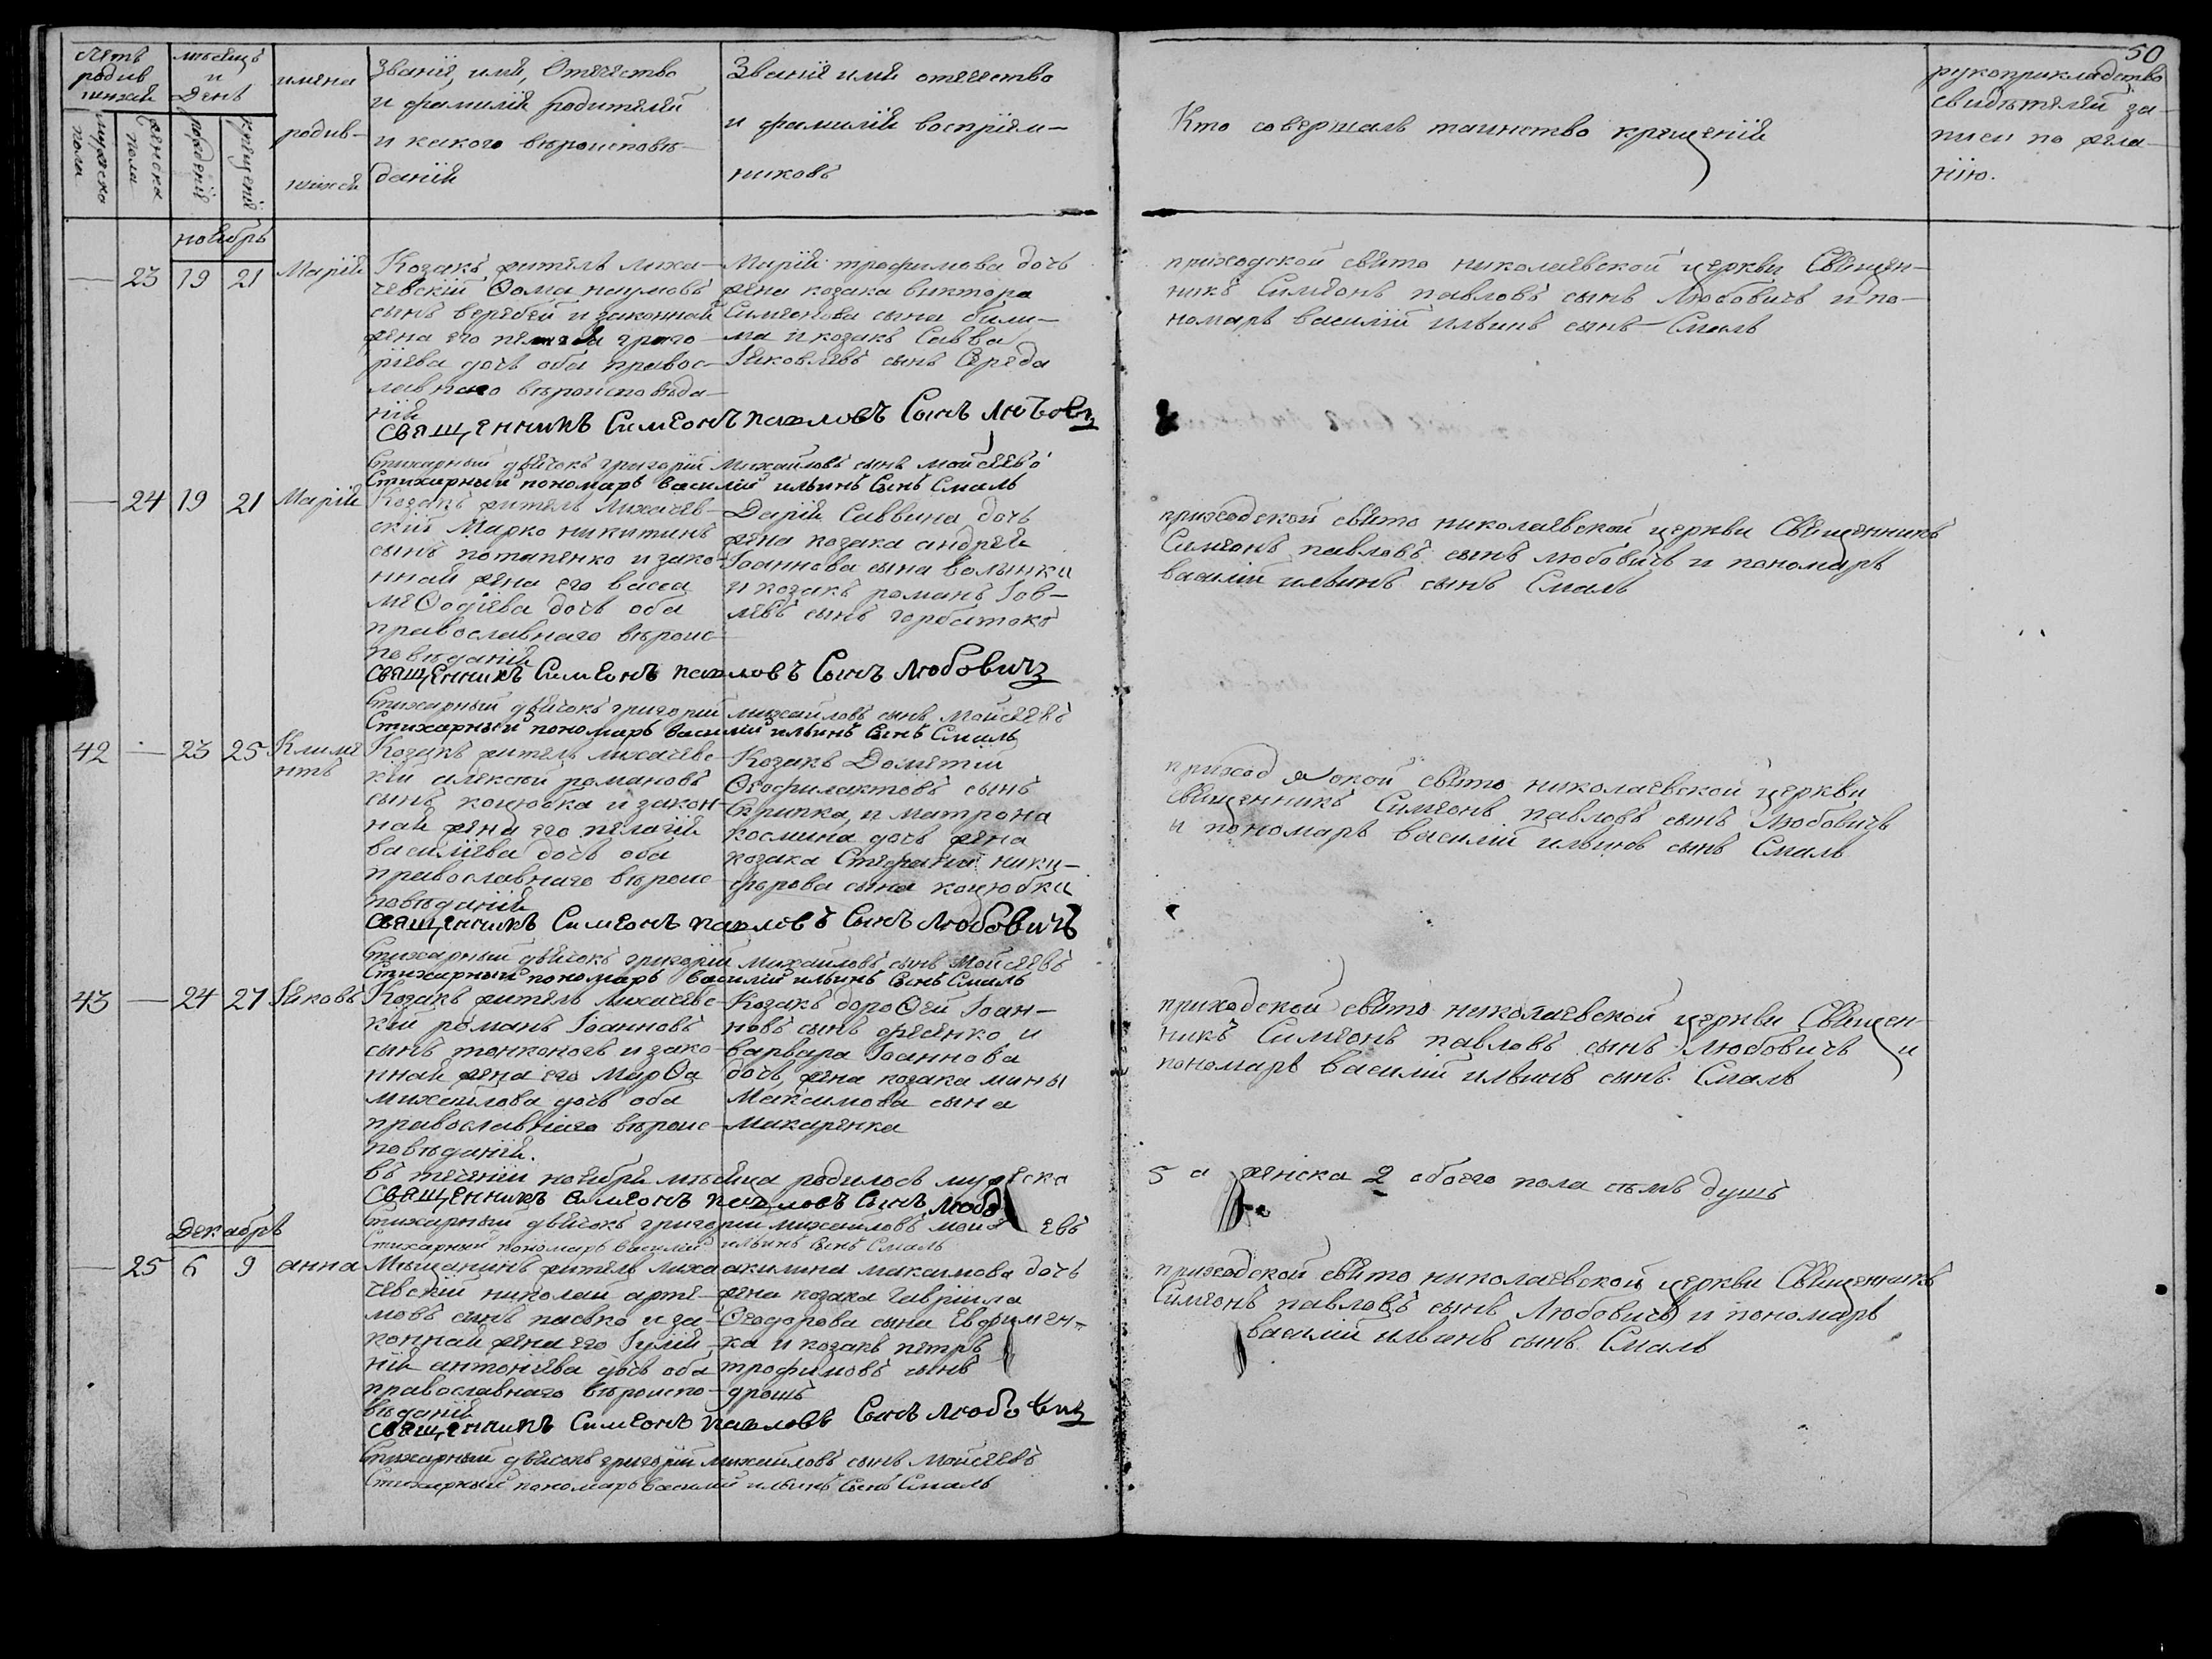 50
Летъ родив шихся
мужеска пола
женска пола
мѣсяцъ и День
рождения
крещения
имена родив- шихся
Званіе, имя, Отчество
и фамилія родителей
и какого вѣроисповѣ-
данія
Званіе имя отчество
и фамилія воспріем-
никовъ
Кто совершалъ таинство крещенія
рукоприкладство
свидѣтелей за-
писи по жела-
нію.
ноябрь
— 23 19 21 Марія
Козакъ житель лиха-
чевскій Ѳома наумовъ
сынъ веребей и законная
жена его пелагея григо-
ріева дочь оба правос-
лавнаго вѣроисповѣда-
нія
Марія трофимова дочь
жена козака виктора
Симеонова сына били-
ма и козакъ Савва
Яковлевъ сынъ Середа
приходской свято николаевской церкви Священ-
никъ Симеонъ павловъ сынъ Любовичъ и по-
номарь василій ильинъ сынъ Смаль
священникъ Симеонъ павловъ Сынъ Любови
Стихарный дьячокъ григорій михайловъ сынъ мойсеевъ
Стихарный пономарь василій ильинъ Сынъ Смаль
— 24 19 21 Марія
Козакъ житель Лихачев-
скій Марко никитинъ
сынъ потапенко и зако-
нная жена его васса
меѲодіева дочь оба
православнаго вѣроис-
повѣданія
Дарія Саввина дочь
жена козака андрея
Іоаннова сына волынки
и козакъ романъ Іов-
левъ сынъ горбатокъ
приходской свято николаевской церкви Священникъ
Симеонъ павловъ сынъ любовичъ и пономарь
василій ильинъ сынъ Смаль
священникъ Симеонъ павловъ Сынъ Любовичъ
Стихарный дьячокъ григорій михайловъ сынъ мойсеевъ
Стихарный пономарь василий ильинъ Сынъ Смаль
42 — 23 25 Климе
нтъ
Козакъ житель лихачевс-
кій алексей романовъ
сынъ коцюбка и закон-
ная жена его пелагія
василіева дочь оба
православнаго вѣроис-
повѣданія
Козакъ Дометій
Ѳеофилактовъ сынъ
Скрипка, и матрона
космина дочь жена
козака Стефана ники-
форова сына коцюбки
приходской свято николаевской церкви
священникъ Симеонъ павловъ сынъ Любовичъ
и пономарь василій ильинъ сынъ Смаль
священникъ Симеонъ павловъ Сынъ Любовичъ
Стихарный дьячокъ григорій михайловъ сынъ мойсеевъ
Стихарный пономарь василій ильинъ Сынъ Смаль
43 — 24 27 Яковъ
Козакъ житель лихачевс-
кій романъ Іоанновъ
сынъ тонконогъ и зако-
нная жена его марѲа
михайлова дочь оба
православнаго вѣроис-
повѣданія.
Козакъ дороѲей Іоан-
новъ сынъ фесенко и
варвара Іоаннова
дочь, жена козака мины
Максимова сына
макаренка
приходской свято николаевской церкви Священ-
никъ Симеонъ павловъ сынъ Любовичъ и
пономарь василій ильинъ сынъ Смаль
въ теченіи ноября мѣсяца родилось мужеска 5 а женска 2 обоего пола семь душъ
священникъ Симеонъ павловъ Сынъ Любо
Стихарный дьячокъ григорій михайловъ мойсеевъ
Стихарный пономарь василий ильинъ Сынъ Смаль
Декабрь
— 25 6 9 анна
Мѣщанинъ житель лиха
чевскій николай арте-
мовъ сынъ пасько и за-
конная жена его Іулія
нія антоніева дочь оба
православнаго вѣроиспо-
вѣданія
акилина максимова дочь
жена козака Гаврила
Ѳеодорова сына Евфимен-
ка и козакъ петръ
трофимовъ сынъ
дрошъ
приходской свято николаевской церкви Священникъ
Симеонъ павловъ сынъ Любовичъ и пономарь
василій ильинъ сынъ Смаль
священникъ Симеонъ павловъ Сынъ Любовичъ
Стихарный дьячокъ григорій михайловъ сынъ мойсеевъ
Стихарный пономарь василий ильинъ Сынъ Смаль